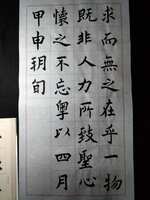 求而無之在乎一物
既非人力所致聖心
懷之不忘粤以四月
甲申玥旬